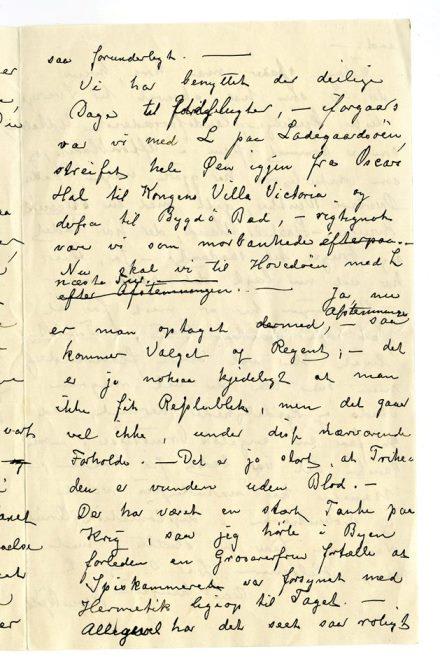 saa forunderligt. —
Vi har benyttet de deilige
Dage til Fodflugter, — Forgaars
var vi med L paa Ladegaardsöen,
streifet hele Øen igjen fra Oscars
Hal til Kongens Villa Victoria og
derfra til Bygdö Bad, — rigtignok
vare vi som mörbankede efterpaa. —
Nu skal vi til Hovedöen med L
næste
efter Afstemningen. — Ja nu
Afstemninge
er man optaget dermed, — saa
kommer Valget af Regent, — det
er jo noksaa kjedeligt at man
ikke fik Republikk, men det gaar
vel ikke, under disse nærværende
Forholde. — Det er jo stort, at Frihe-
den er vunden uden Blod. —
Der har været en stærk Tanke paa
Krig, saa jeg hörte i Byen
forleden en Grosererfrue fortælle at
Spiskammeret var forsynet med
Hermetik ligeop til Taget. —
Alligevel har det seet saa roligt
er
Du
vort
anet
else
er